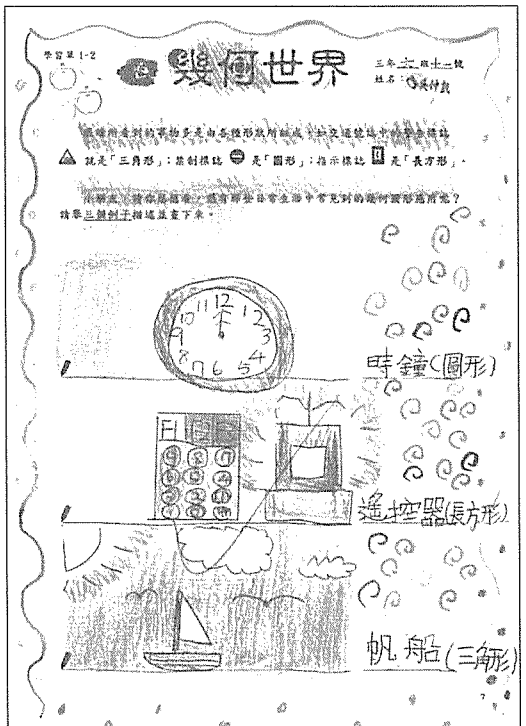 學習單 1-2
幾何世界
三年六班十一號
姓名：
所看到的事物多是由各種形狀所組成，如交通號誌中的警告標誌
就是「三角形」；禁制標誌 是「圓形」；指示標誌 是「長方形」。
小朋友，請你想想看，還有哪些日常生活中常見到的幾何圖形應用呢？
請舉三個例子描述並畫下來。
11 12 1
10 2
9 3
8 4
7 6 5
時鐘(圓形)
遙控器(長方形)
帆船(三角形)
7